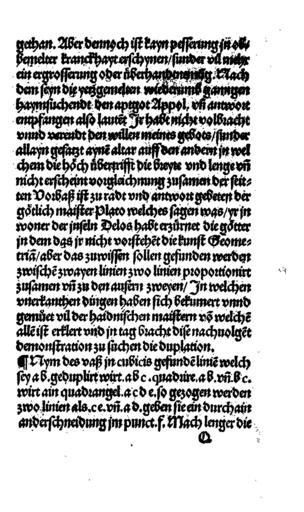 gethan. Aber dennoch ist kayn pesserung in ob
bemelter kranckhayt erschynen/sunder vil mehr
ein ergrosserung oder überhandnemung. Nach
dem seyn die yetzgemelten widerumb ganngen
haymsuchendt den aptgot Appol, vñ antwort
entpfangen also lautet Ir habt nicht volbracht
vnnd verendt den willen meines gebots/sunder
allayn gesatzt aynē altar auff den andern in wel
chem die höch übertrifft die breyte vnd lenge vñ
nicht erscheint vorgleichnung zusamen der seit-
ten Vorbaß ist zu radt vnd antwort gebeten der
götlich maister Plato welches sagen was/yr in
woner der inseln Delos habt erzürnet die götter
in dem das jr nicht vorstehēt die kunst Geome-
tria/aber das zuwissen sollen gefunden werden
zwischē zwayen linien zwo linien proportionirt
zusamen vñ zu den ausern zweyen/ In welchen
vnerkanthen dingen haben sich bekumert vnnd
gemüet vil der haidnischen maistern vō welchē
allē ist erklert vnd in tag bracht dise nachuolgēt
demonstration zu suchen die duplation.
¶ Nym des vaß in cubicis gefundē liniē welch
sey a b. geduplirt wirt. a b c. quadüre. a b. vñ. b c.
wirt ain quadrangel. a c d e. so gezogen werden
zwo linien als. c e. vñ. a d. geben sie ein durchain
anderschneidung jm punct. f. Mach lenger die
Q